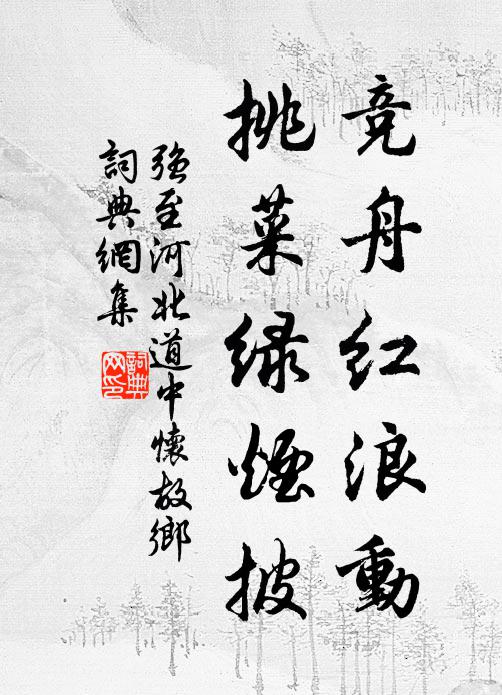 竞舟红浪動
挑菜绿煙披
强至河北道中懷故鄉
詞典網集
詞典网印